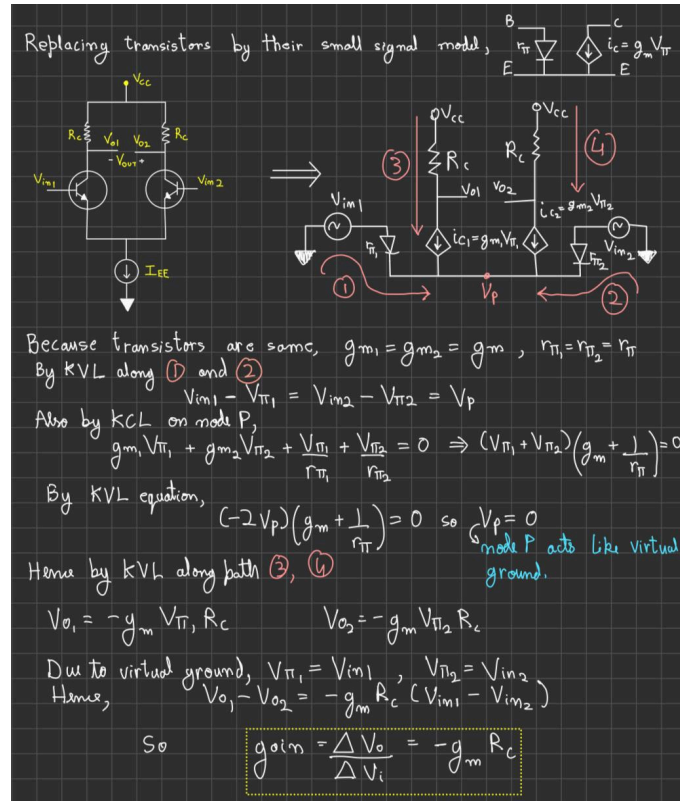 Replacing transistors by their small signal model,
B
C
rπ
i_c = g_m Vπ
E
E
Vcc
Rc
Rc
Vo1
Vo2
- Vout +
Vin1
Vin2
I_EE
⟹
Vcc
Vcc
③
④
Rc
Rc
Vo1
Vo2
Vin1
i_c2 = g_m2 Vπ2
rπ1
i_c1 = g_m1 Vπ1
rπ2
Vin2
①
Vp
②
Because transistors are same, g_m1 = g_m2 = g_m , rπ1 = rπ2 = rπ
By KVL along ① and ②
Vin1 - Vπ1 = Vin2 - Vπ2 = Vp
Also by KCL on node P,
g_m1 Vπ1 + g_m2 Vπ2 + Vπ1/rπ1 + Vπ2/rπ2 = 0 ⇒ (Vπ1 + Vπ2)(g_m + 1/rπ) = 0
By KVL equation,
(-2Vp)(g_m + 1/rπ) = 0 so Vp = 0
node P acts like virtual
ground.
Hence by KVL along path ③, ④
Vo1 = -g_m Vπ1 Rc Vo2 = -g_m Vπ2 Rc
Due to virtual ground, Vπ1 = Vin1 , Vπ2 = Vin2
Hence, Vo1 - Vo2 = -g_m Rc (Vin1 - Vin2)
So gain = ΔVo/ΔVi = -g_m Rc